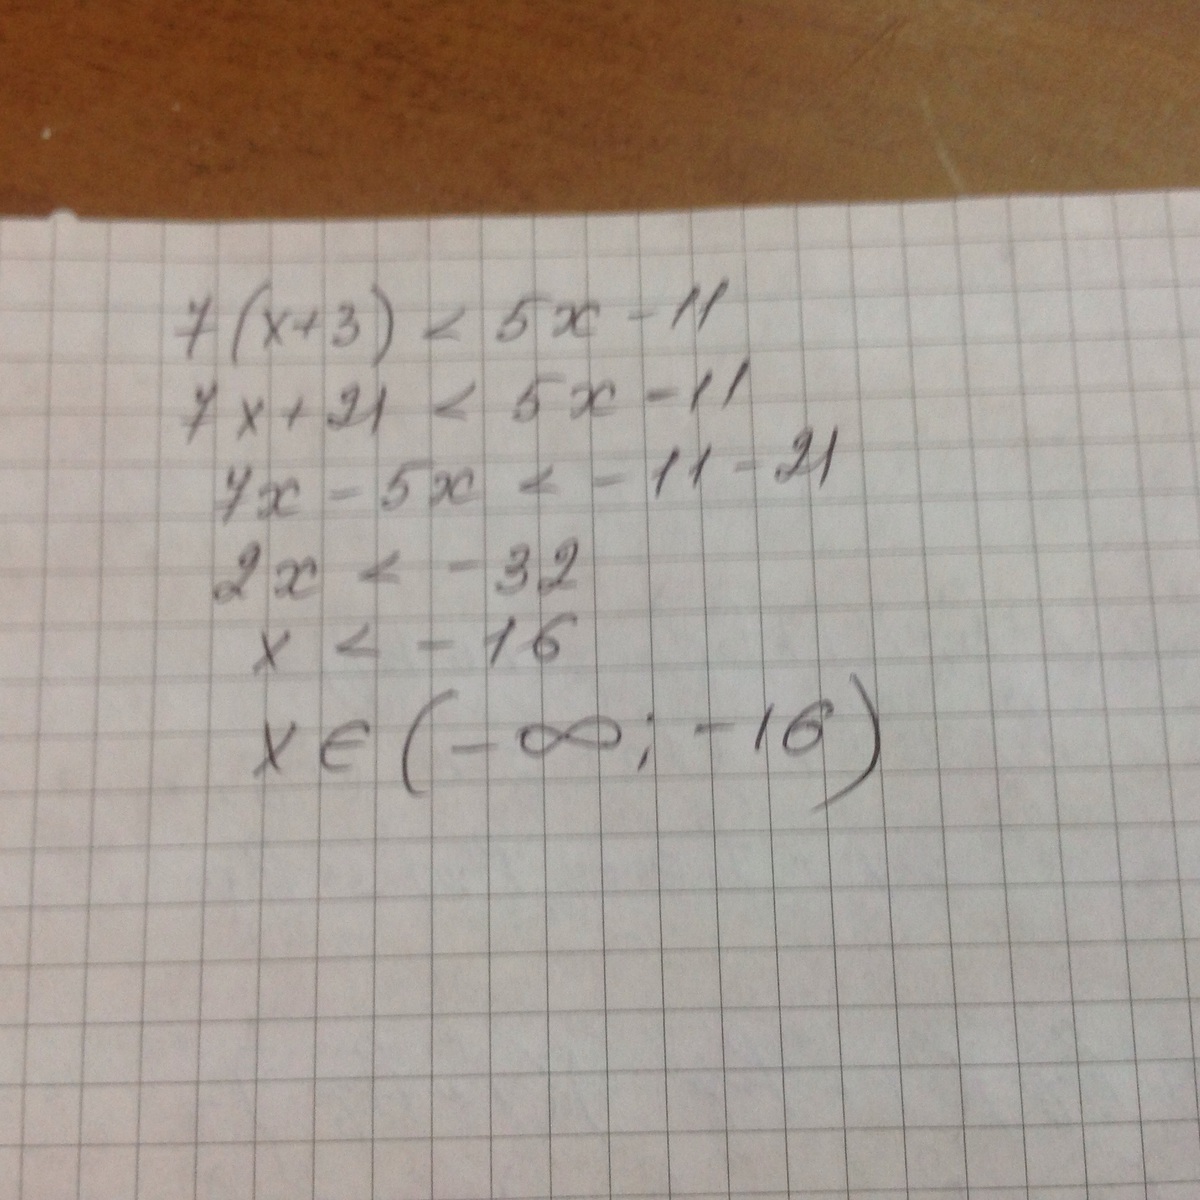 7(x+3) < 5x - 11
7x + 21 < 5x - 11
7x - 5x < - 11 - 21
2x < - 32
x < - 16
x ∈ (- ∞; - 16)